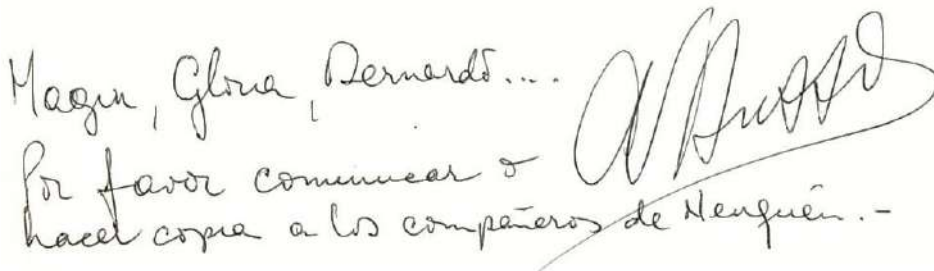 Magin, Gloria, Bernardo....
Por favor comunicar o
hacer copia a los compañeros de Neuquén.-